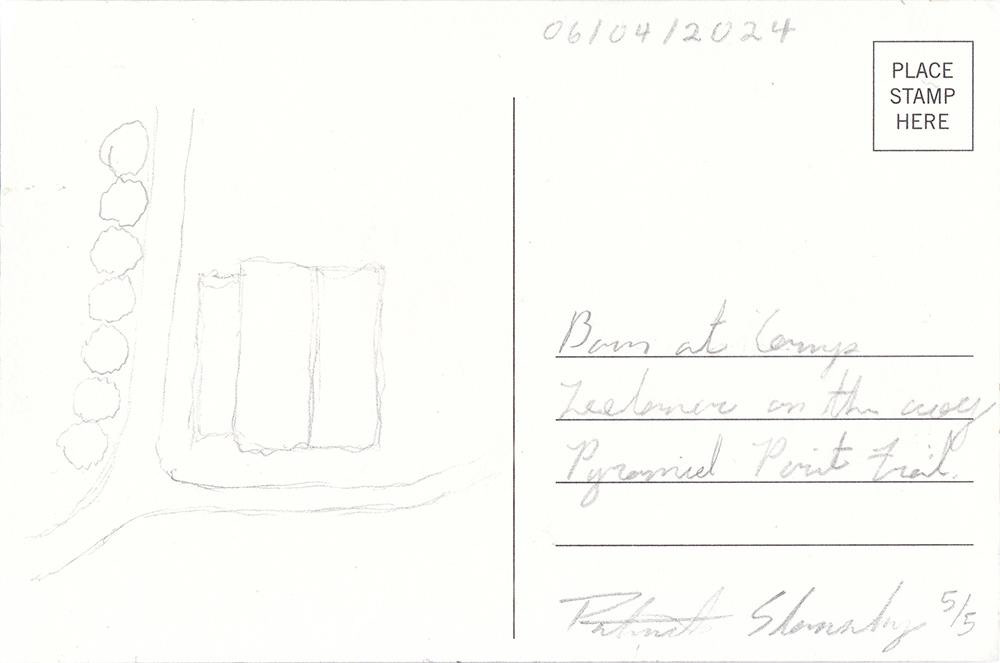 06/04/2024
PLACE
STAMP
HERE
Barn at Camp
on the way
Pyramid Point trail.
5/5